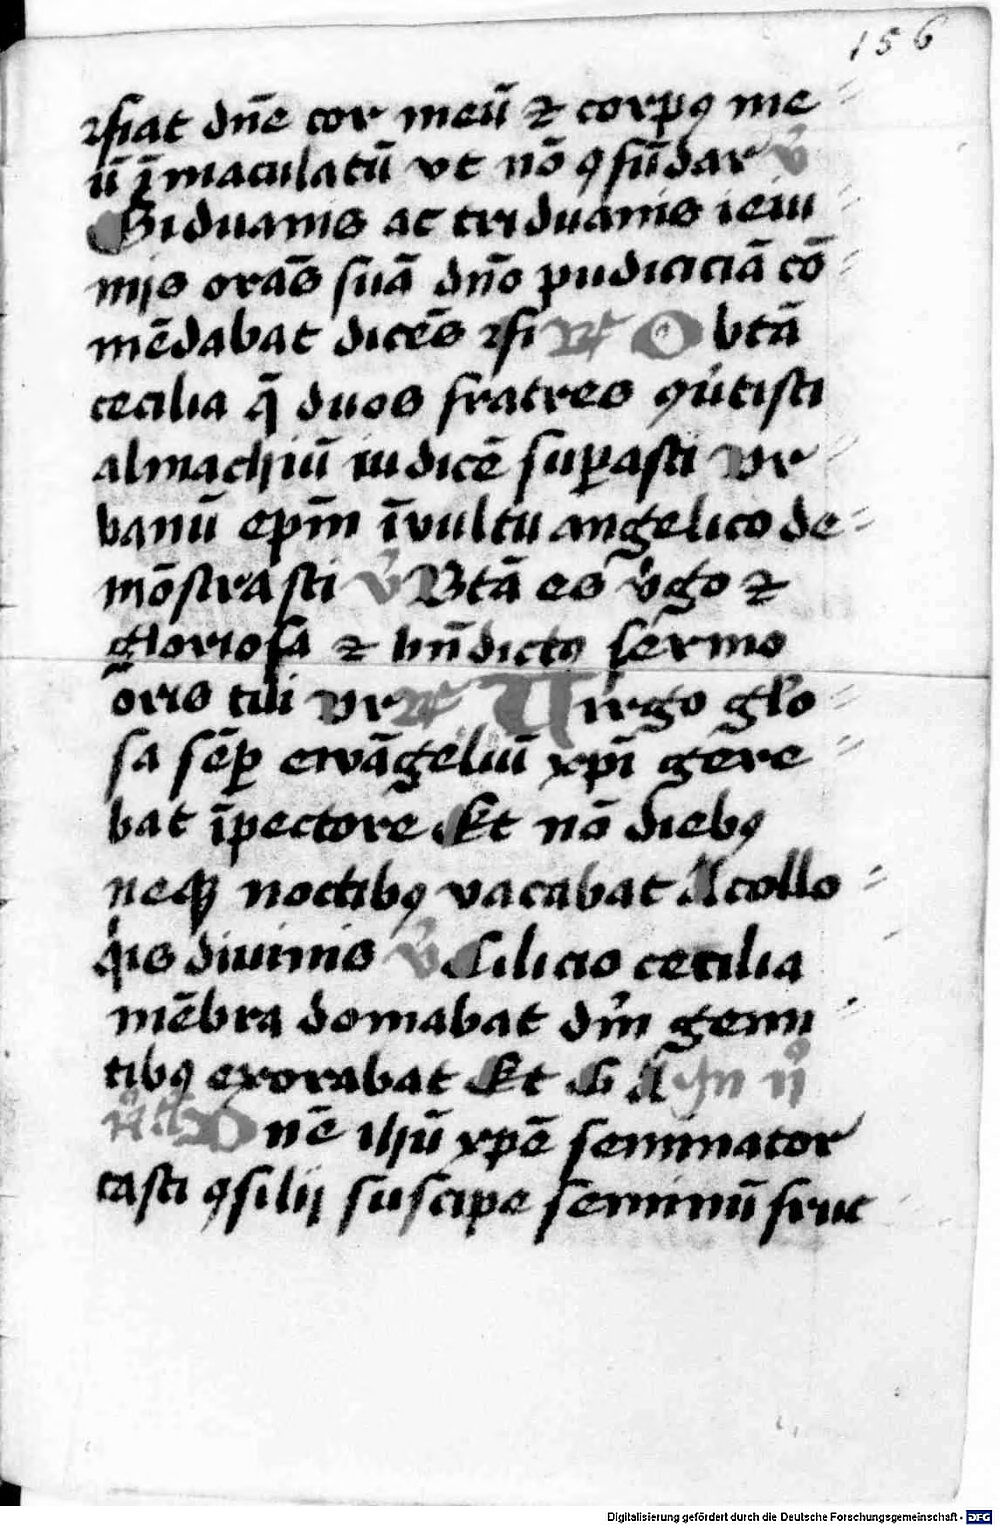 156
ꝛfiat dn̄e cor meū ⁊ corpꝯ me
ū īmaculatū vt nō ꝯfūdar ℣
Biduanis ac triduanis ieiu
nijs orās suā dn̄o pudiciciā cō
mēdabat dicēs ꝛfi ℟ O btā
cecilia q̄ duos fratres ꝯūtisti
almachiū iudicē suꝑasti vr
banū ep̄m īvultu angelico de
mōstrasti ℣ Btā es v̓go ⁊
gloriosa ⁊ bn̄dictꝯ sermo
oris tui vr ℟ Uirgo glo
sa sēꝑ ewāgeliū xp̄i gere
bat īpectore Et nō diebꝯ
neqꝫ noctibꝯ vacabat A collo
qͥis diuinis ℣ Cilicio cecilia
mēbra domabat dm̄ gemi
tibꝯ exorabat Et G A Jn ij
nō añ D nē ihū xp̄e seminator
casti ꝯsilij suscipe seminū fruc
Digitalisierung gefördert durch die Deutsche Forschungsgemeinschaft - DFG